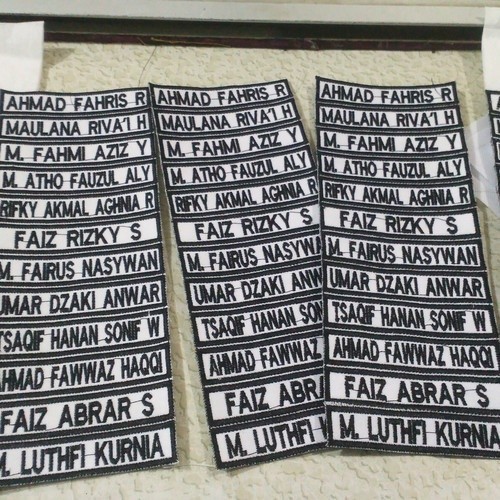 AHMAD FAHRIS R
MAULANA RIVA'I H
M. FAHMI AZIZ Y
M. ATHO FAUZUL ALY
RIFKY AKMAL AGHNIA R
FAIZ RIZKY S
M. FAIRUS NASYWAN
UMAR DZAKI ANWAR
TSAQIF HANAN SONIF W
AHMAD FAWWAZ HAQQI
FAIZ ABRAR S
M. LUTHFI KURNIA
AHMAD FAHRIS R
MAULANA RIVA'I H
M. FAHMI AZIZ Y
M. ATHO FAUZUL ALY
RIFKY AKMAL AGHNIA R
FAIZ RIZKY S
M. FAIRUS NASYW
UMAR DZAKI ANW
TSAQIF HANAN SON
AHMAD FAWW
FAIZ ABR
M. LUTHFI
AHMAD FAHRIS R
MAULANA RIVA'I H
M. FAHMI AZIZ Y
M. ATHO FAUZUL ALY
RIFKY AKMAL AGHNIA R
FAIZ RIZKY S
M. FAIRUS NASYWAN
UMAR DZAKI ANWAR
TSAQIF HANAN SONIF W
AHMAD FAWWAZ HAQQI
FAIZ ABRAR S
M. LUTHFI KURNIA